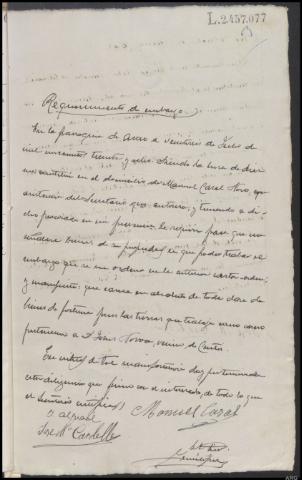 L.2457.077
Requerimiento de embargo.
En la parroquia de Arcos a veintiuno de Julio de
mil novecientos treinta y ocho. Siendo la hora de diez
me constituí en el domicilio de Manuel Casal Novo, con
asistencia del Secretario que autoriza, y teniendo a di-
cho procesado en mi presencia, le requerí para que me
señalase bienes de su propiedad en que poder trabar el
embargo que se me ordena en la anterior carta-orden;
y manifestó: que carece en absoluto de toda clase de
bienes de fortuna pues las tierras que trabaja como casa
pertenecen a D. José Novoa, vecino de Cuntis.
En virtud de tal manifestación doy por terminada
esta diligencia que firmo con el interesado, de todo lo que
el Secretario certifico.
Manuel Casal
José Mª Cardelle